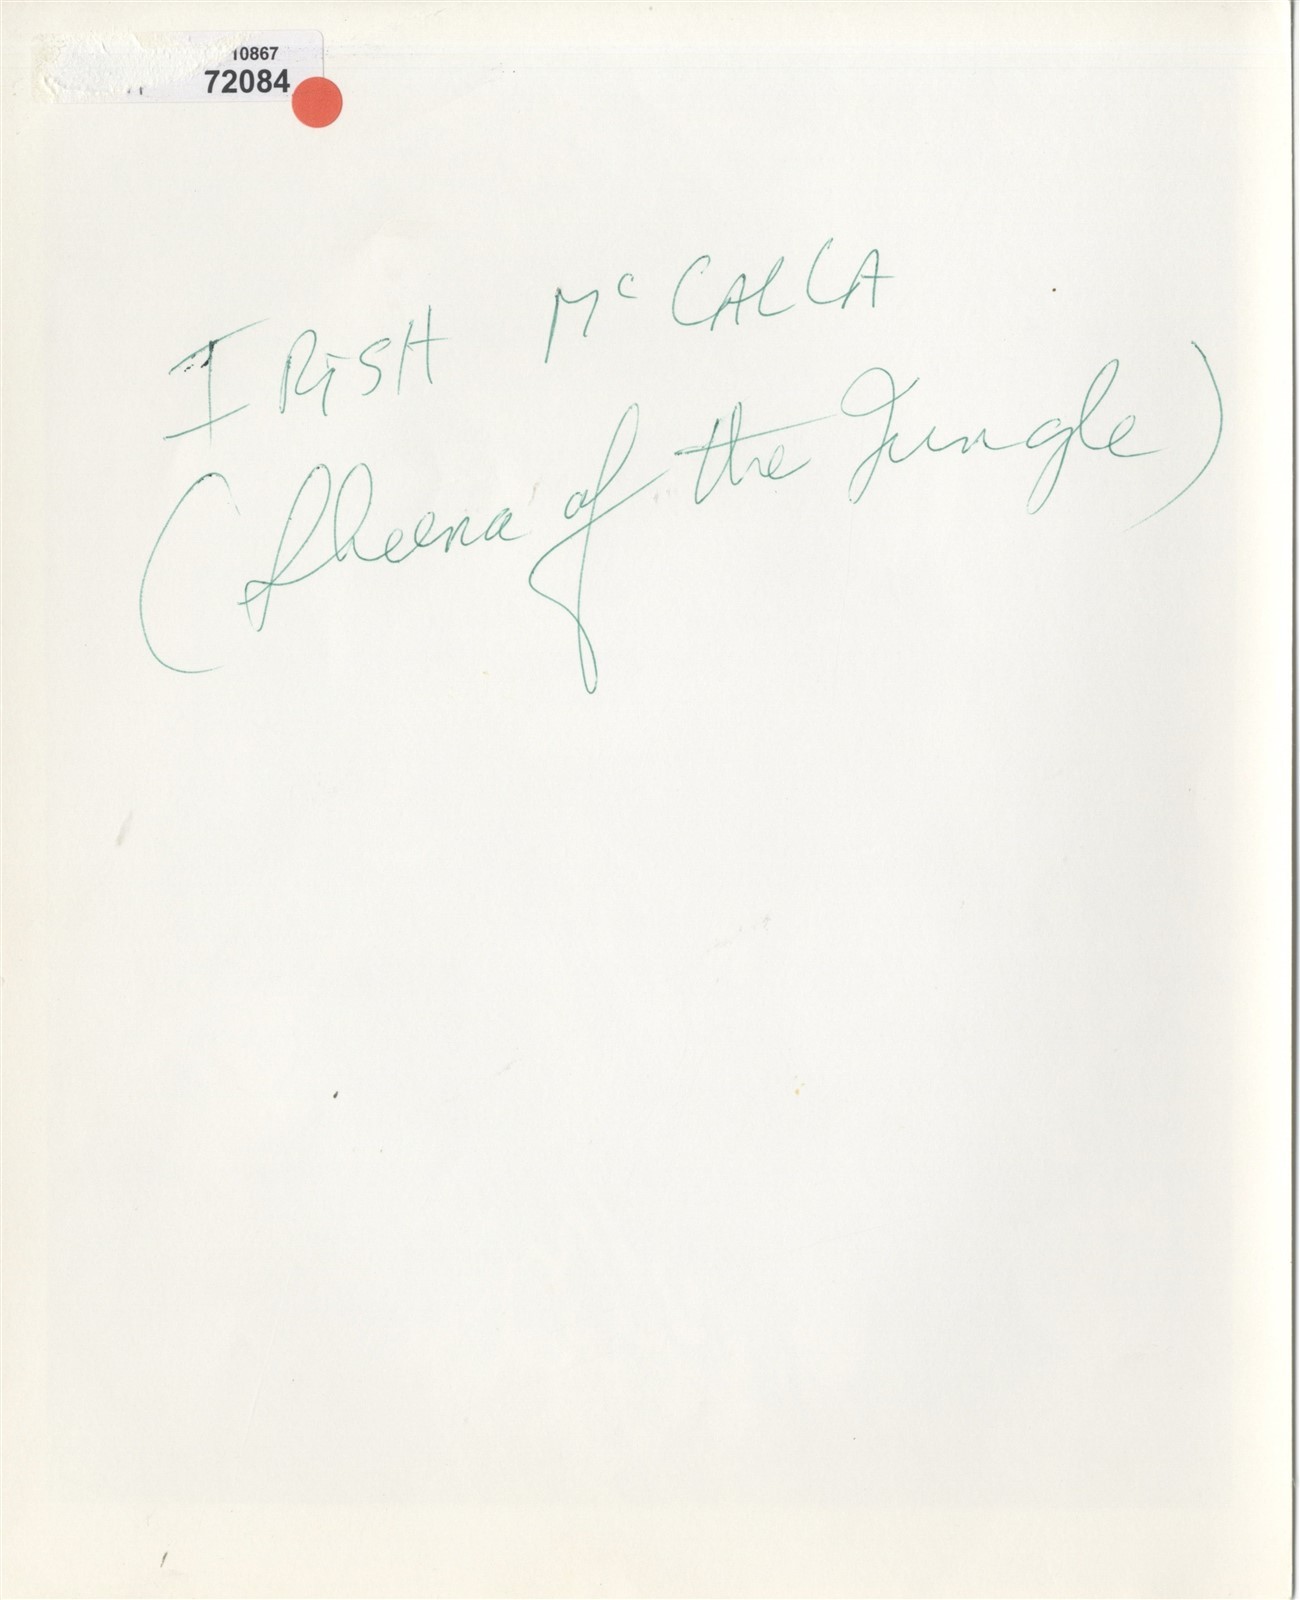 10867
72084
IRISH McCALLA
(Sheena of the Jungle)